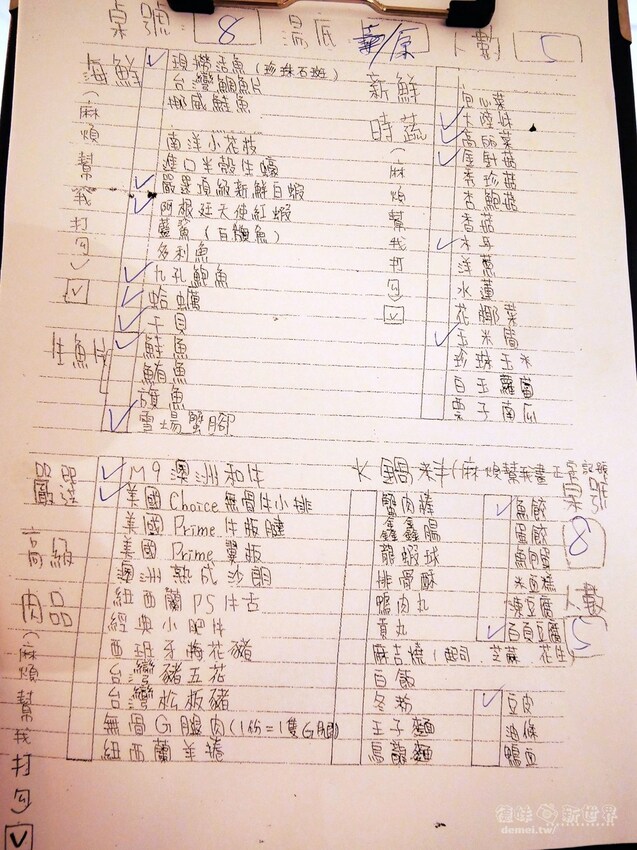 桌號: 8 湯底 /原 人數 5
海鮮(麻煩幫我打勾✓ ☑
✓ 現撈活魚(珍珠石斑)
台灣鯛魚片
挪威鮭魚
南洋小花枝
進口半殼生蠔
✓ 嚴選頂級新鮮白蝦
✓ 阿根廷天使紅蝦
藍鯊(百饌魚)
多利魚
✓ 九孔鮑魚
✓ 蛤蠣
✓ 干貝
生魚片
✓ 鮭魚
鮪魚
旗魚
✓ 雪場蟹腳
新鮮時蔬(麻煩幫我打勾 ☑
空心菜
✓ 大陸妹
✓ 高麗菜
✓ 金針菇
秀珍菇
杏鮑菇
香菇
✓ 木耳
洋蔥
水蓮
花椰菜
✓ 玉米筍
珍珠玉米
白玉蘿蔔
栗子南瓜
嚴選高級肉品(麻煩幫我打勾 ☑
✓ M9 澳洲和牛
✓ 美國 Choice 無骨牛小排
美國 Prime 牛板腱
美國 Prime 翼板
澳洲熟成沙朗
紐西蘭 PS 牛舌
經典小肥牛
西班牙梅花豬
台灣豬五花
台灣松板豬
無骨G腿肉(1份=1隻G腿)
紐西蘭羊捲
火鍋料(麻煩幫我畫正字記號
蟹肉棒
鑫鑫腸
龍蝦球
排骨酥
鴨肉丸
貢丸
麻吉燒(起司.芝麻.花生)
白飯
冬粉
王子麵
烏龍麵
✓ 魚餃
蛋餃
魚卵蛋
米血糕
凍豆腐
✓ 百頁豆腐
✓ 豆皮
油條
鴨血
桌號 8
人數 5
新世界
demei.tw/